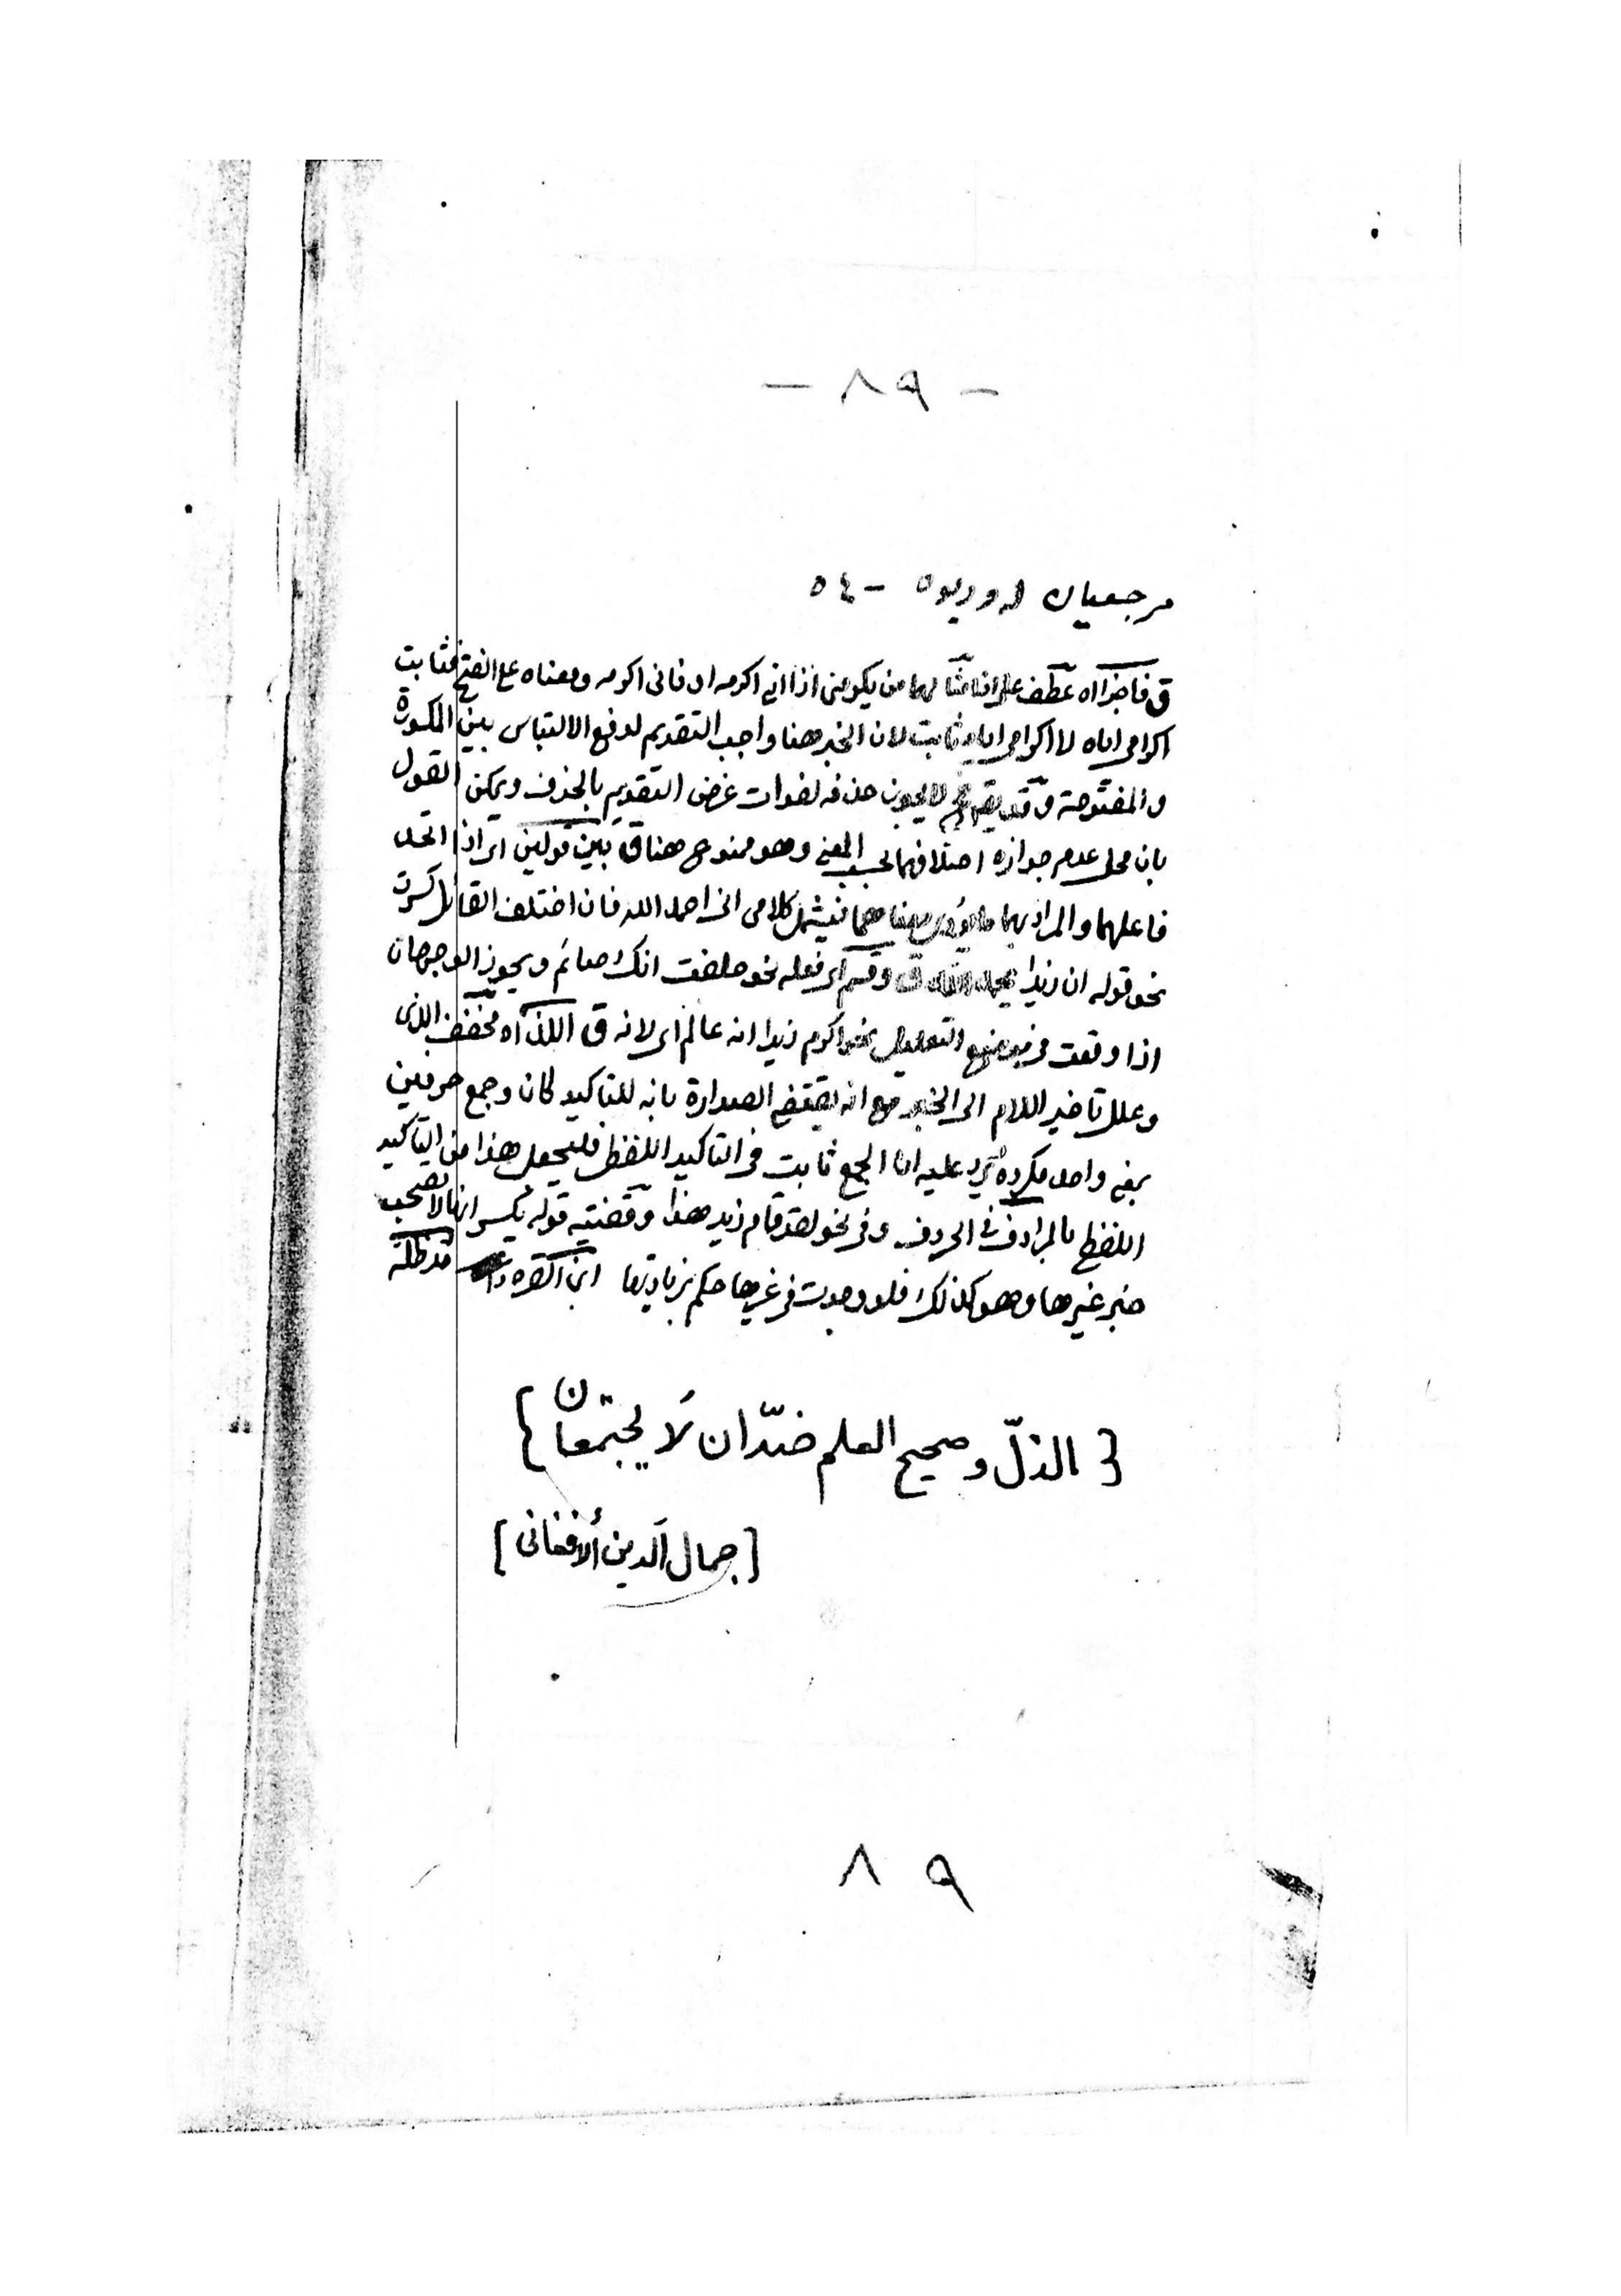 - ٨٩ -
مرجعيان له وديوه - ٥٤
ق فاجزاه عطف على اذا مثالها من يكرمنى اذا انى اكرمه او فانى اكرمه ومعناه على الفتح فثابت
اكرامى اياه لا اكرامى اياه ثابت لان الخبر هنا واجب التقديم لدفع الالتباس بين المكسورة
والمفتوحة وقد لا يجوز حذفه لفوات غرض التقديم بالحذف ويمكن القول
بان محل عدم جوازه اختلافهما بحسب المعنى وهو ممنوع هنا ق بين قولين اى اذا اتحد
فاعلهما والمراد بهما فيشمل كلامى انى احمد الله فان اختلف القائل كسرت
نحو قوله ان زيدا يحمد الله ق وقسم اى فعله نحو حلفت انك صائم ويجوز الوجهان
اذا وقعت فى موضع التعليل نحو اكرم زيدا انه عالم اى لانه ق اللذاه مخفف اللذى
وعلل تاخير اللام الى الخبر مع انه يقتضى الصدارة بانه للتاكيد كان وجمع حرفين
بمعنى واحد مكروه يرد عليه ان الجمع ثابت فى التاكيد اللفظى فليجعل هذا من التاكيد
اللفظى بالمرادف فى الحروف وفى نحو لقد قام زيد هذا وقضية قوله بكسر انها لا تصحب
خبر غيرها وهو كذلك فلو وجدت فى غيرها حكم بزيادتها ابن القره مدظله
{ الذلّ وصحيح العلم ضدّان لَا يجتمعان }
[ جمال الدين ألافغانى ]
٨٩